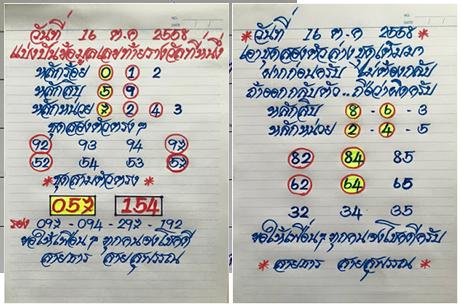 วันที่ 16 ต.ค 2568
แบ่งปันข้อมูลเลขท้ายรางวัลที่หนึ่ง
หลักร้อย 0 1 2
หลักสิบ 5 9
หลักหน่วย 7 2 4 3
ชุดสองตัวตรงๆ
92 93 94 97
52 54 53 57
*ชุดสามตัวตรง*
057 154
รอง 097 - 094 - 297 - 192
ขอให้เพื่อนๆ ทุกคนจงโชคดี
สายธาร สายสุพรรณ
NO.
*วันที่ 16 ต.ค 2568*
เอาชุดสองตัวล่างชุดเดิมมา
ฝากก่อนครับ ไม่ต้องกลับ
ถ้าออกกลับตัว..ถือว่าผิดครับ
หลักสิบ 8 - 6 - 3
หลักหน่วย 2 - 4 - 5
82 84 85
62 64 65
32 34 35
ขอให้เพื่อนๆ ทุกคนจงโชคดีครับ
* สายธาร สายสุพรรณ *